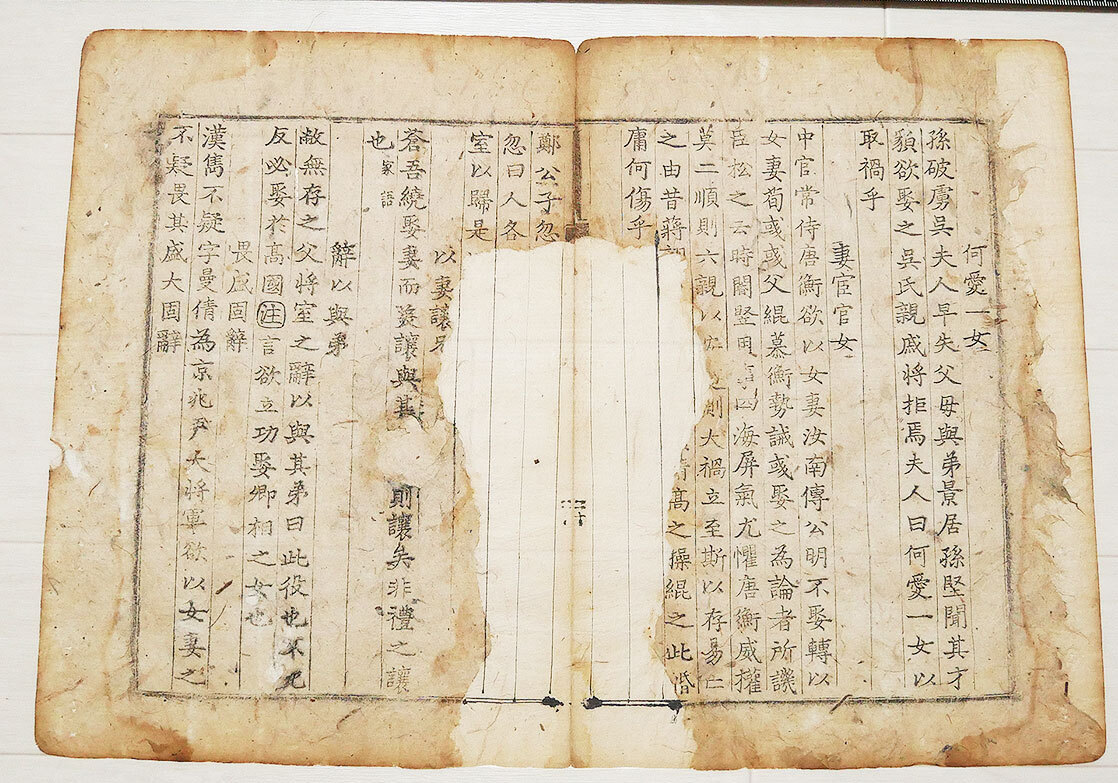 何愛一女
孫破虜吳夫人早失父母與弟景居孫堅聞其才
貌欲娶之吳氏親戚將拒焉夫人曰何愛一女以
取禍乎
妻宦官女
中官常侍唐衡欲以女妻汝南傅公明不娶轉以
女妻荀彧彧父緄慕衡勢誡彧娶之為論者所譏
臣松之云時閹豎用事四海屏氣尤懼唐衡威權
莫二順則六親以 則大禍立至斯以存易亡
之由昔蔣 高之操緄之此婚
庸何傷乎
鄭公子忽
忽曰人各
室以歸是
以妻讓
蒼吾繞娶妻而美讓與其 則讓矣非禮之讓
也家語
辭以與弟
敝無存之父將室之辭以與其弟曰此役也不死
反必娶於高國注言欲立功娶卿相之女也
畏盛固辭
漢雋不疑字曼倩為京兆尹大將軍欲以女妻之
不疑畏其盛大固辭